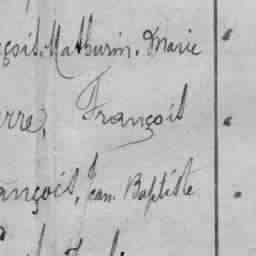 çois, Mathurin, Marie
erre, François
ançois, Jean Baptiste